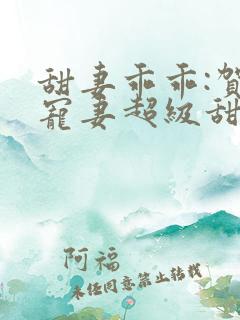 甜妻乖乖:賀
寵妻超級甜
阿福
未经同意禁止转载